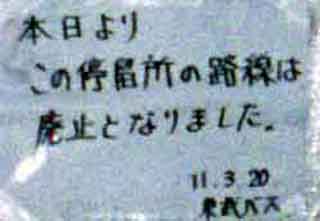 本日より
この停留所の路線は
廃止となりました。
11.3.20
東武バス